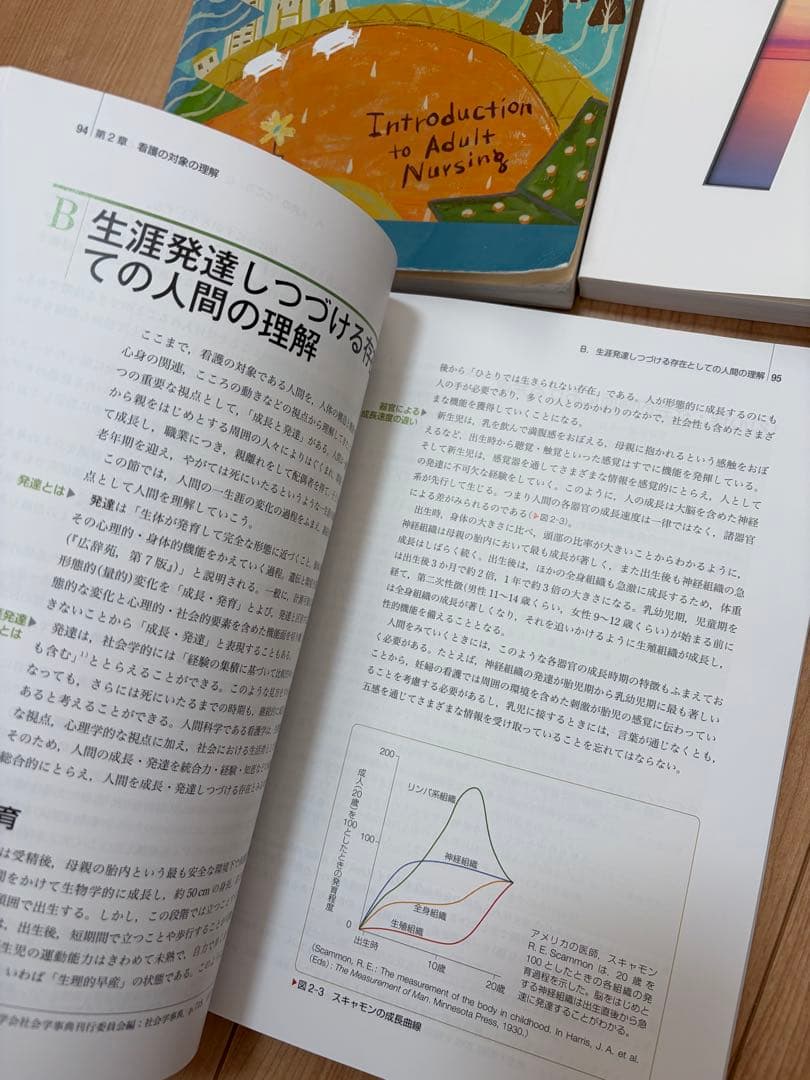 Introduction
to Adult
Nursing
94 第2章 看護の対象の理解
B 生涯発達しつづける存
ての人間の理解
ここまで,看護の対象である人間を,人体の構造
心身の関連,こころの動きなどの視点から理解してき
つの重要な視点として,「成長と発達」がある。人間
から親をはじめとする周囲の人々によりはぐくまれ,
て成長し,職業につき,親離れをして配偶者を得て,
老年期を迎え,やがては死にいたるというような一生
この節では,人間の一生涯の変化の過程をふまえ,
点として人間を理解していこう。
発達とは▶
発達は「生体が発育して完全な形態に近づくこと,
その心理的・身体的機能をかえていく過程。遺伝と環
(『広辞苑,第7版』)」と説明される。一般に,計測可
形態的(量的)変化を「成長・発育」とよび,発達と
態的な変化と心理的・社会的要素を含めた機能面
きないことから「成長・発達」と表現することもある。
発達
とは▶
発達は,社会学的には「経験の集積に基づいて比
も含む」¹⁾ととらえることができる。このような見方
なっても,さらには死にいたるまでの時期も,継続的に
あると考えることができる。人間科学である看護学は,
な視点,心理学的な視点に加え,社会における生活者
そのため,人間の成長・発達を統合力・経験・知恵など
総合的にとらえ,人間を成長・発達しつづける存在と
育
は受精後,母親の胎内という最も安全な環境下で
間をかけて生物学的に成長し,約50cmの身長,
頭囲で出生する。しかし,この段階では立つこと
は,出生後,短期間で立つことや歩行することが
生児の運動能力はきわめて未熟で,自力で
いわば「生理的早産」の状態である。この
学会社会学事典刊行委員会編:社会学事典,
B.生涯発達しつづける存在としての人間の理解 95
後から「ひとりでは生きられない存在」である。人が形態的に成長するのにも
人の手が必要であり,多くの人とのかかわりのなかで,社会性も含めたさまざ
まな機能を獲得していくことになる。
器官による▶
成長速度の違い
新生児は,乳を飲んで満腹感をおぼえる,母親に抱かれるという感触をおぼ
えるなど,出生時から聴覚・触覚といった感覚はすでに機能を発揮している。
そして新生児は,感覚器を通してさまざまな情報を感覚的にとらえ,人として
の発達に不可欠な経験をしていく。このように,人の成長は大脳を含めた神経
系が先行して生じる。つまり人間の各器官の成長速度は一律ではなく,諸器官
による差がみられるのである(▶図2-3)。
出生時,身体の大きさに比べ,頭部の比率が大きいことからわかるように,
神経組織は母親の胎内において最も成長が著しく,また出生後も神経組織の急
成長はしばらく続く。出生後は,ほかの全身組織も急激に成長するため,体重
は出生後3か月で約2倍,1年で約3倍の大きさになる。乳幼児期,児童期を
経て,第二次性徴(男性11〜14歳くらい,女性9〜12歳くらい)が始まる前に
は全身組織の成長が著しくなり,それを追いかけるように生殖組織が成長し,
性的機能を備えることとなる。
人間をみていくときには,このような各器官の成長時期の特徴もふまえてお
く必要がある。たとえば,神経組織の発達が胎児期から乳幼児期に最も著しい
ことから,妊婦の看護では周囲の環境を含めた刺激が胎児の感覚に伝わってい
ることを考慮する必要があるし,乳児に接するときには,言葉が通じなくとも,
五感を通じてさまざまな情報を受け取っていることを忘れてはならない。
200
100
0
成人(20歳)を100としたときの発育程度
リンパ系組織
神経組織
全身組織
生殖組織
出生時
10歳
20歳
アメリカの医師,スキャモン
R. E. Scammon は,20歳を
100としたときの各組織の発
育過程を示した。脳をはじめと
する神経組織は出生直後から急
速に発達することがわかる。
(Scammon, R. E.: The measurement of the body in childhood. In Harris, J. A. et al.
(Eds): The Measurement of Man. Minnesota Press, 1930.)
▶図2-3 スキャモンの成長曲線